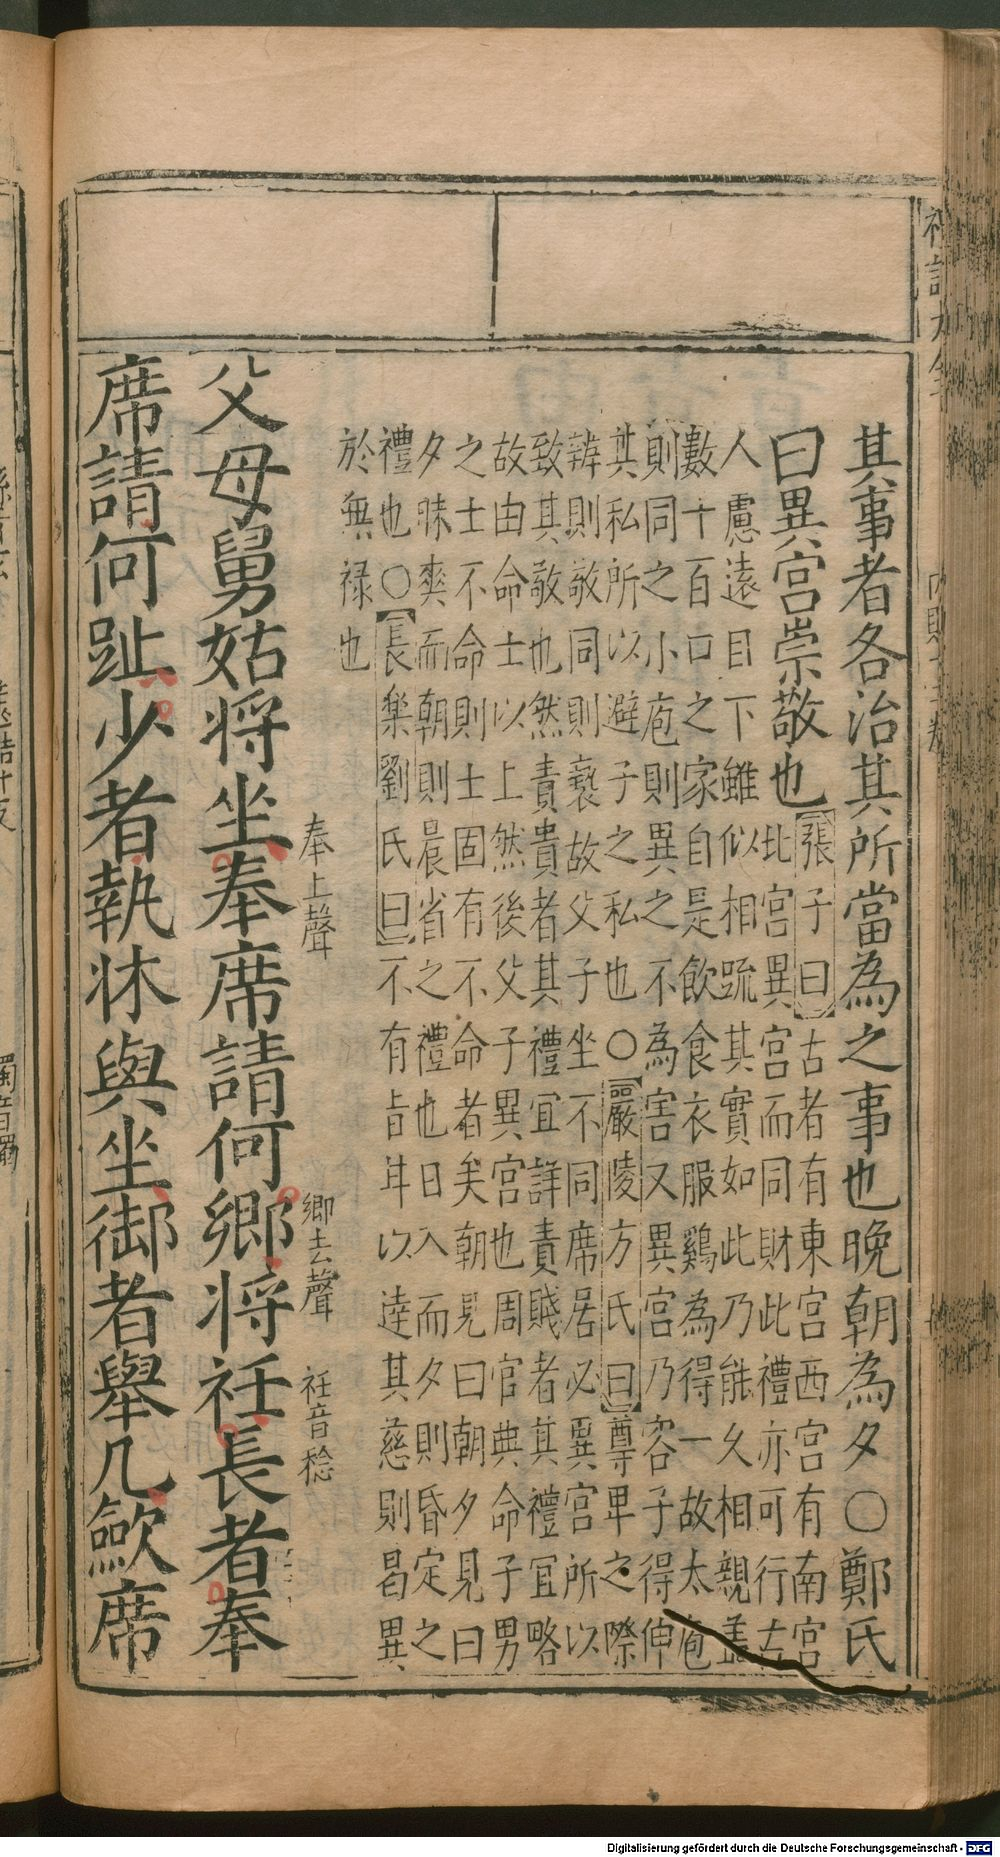 其事者各治其所當為之事也晚朝為夕○鄭氏
曰異宮崇敬也
張子曰古者有東宮西宮有南宮
北宮異宮而同財此禮亦可行古
人慮遠目下雖似相疏其實如此乃能久相親蓋
數十百口之家自是飲食衣服難為得一故太庖
則同之小庖則異之不為害又異宮乃容子得伸
其私所以避子之私也○嚴陵方氏曰尊卑之際
辨則敬同則褻故父子坐不同席居必異宮所以
致其敬也然責貴者其禮宜詳責賤者其禮宜略
故由命士以上然後父子異宮也周官典命子男
之士不命則士固有不命者矣朝見曰朝夕見曰
夕昧爽而朝則晨省之禮也日入而夕則昏定之
禮也○長樂劉氏曰不有旨甘以達其慈則曷異
於無祿也
奉上聲 鄉去聲 衽音稔
父母舅姑將坐奉席請何鄉將衽長者奉
席請何趾少者執牀與坐御者舉几斂席
Digitalisierung gefördert durch die Deutsche Forschungsgemeinschaft - DFG